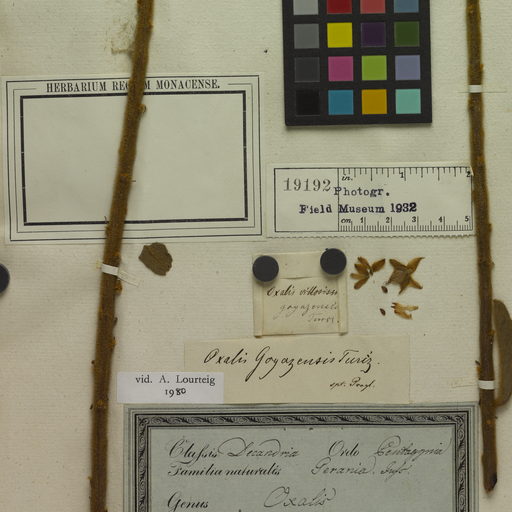 HERBARIUM REGIUM MONACENSE.
19192
in.
1
2
Photogr.
Field Museum 1932
cm.
1
2
3
4
5
Oxalis villosissima
goyazensis
Turcz.
Oxalis Goyazensis Turcz.
vid. A. Lourteig
1980
Classis Decandria Ordo Pentagynia
Familia naturalis Gerania Juss.
Genus Oxalis